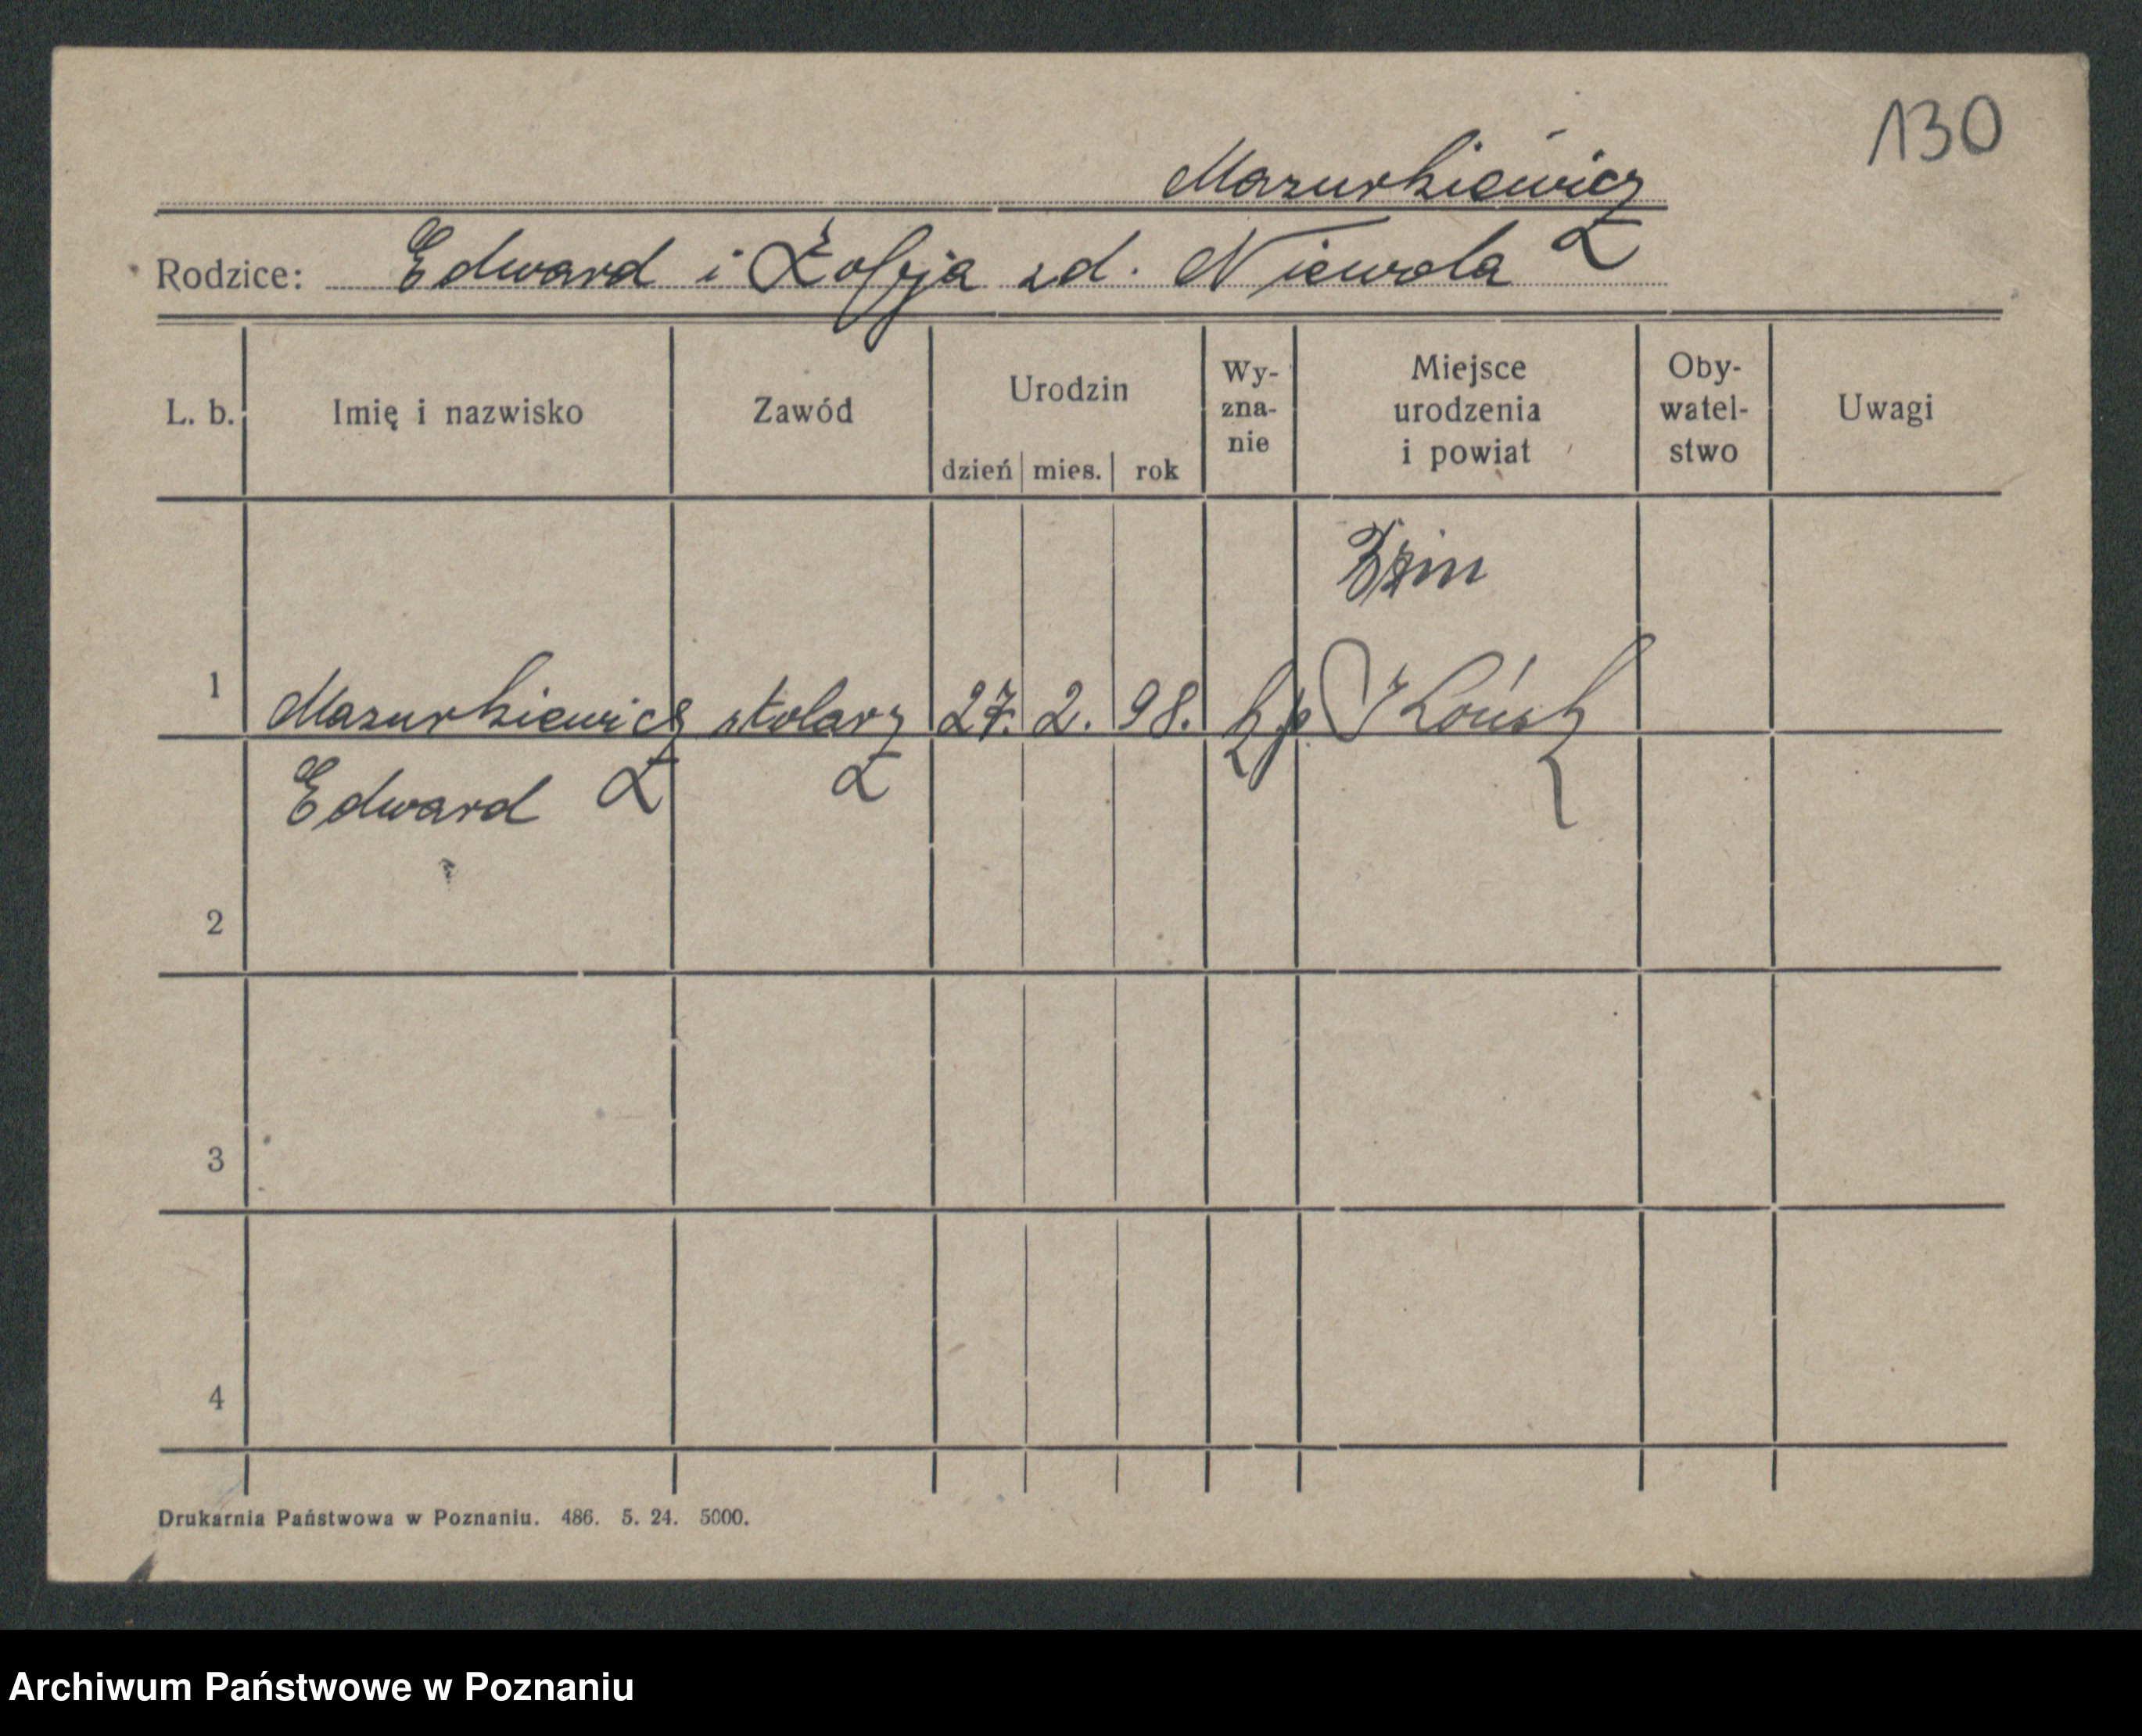 130
Mazurkiewicz
Rodzice: Edward i Zofja zd. Niewola
L. b. Imię i nazwisko Zawód Urodzin dzień mies. rok Wy-zna-nie Miejsce urodzenia i powiat Oby-watel-stwo Uwagi
1 Mazurkiewicz stolarz 27. 2. 98.
Edward
2
3
4
Drukarnia Państwowa w Poznaniu. 486. 5. 24. 5000.
Archiwum Państwowe w Poznaniu